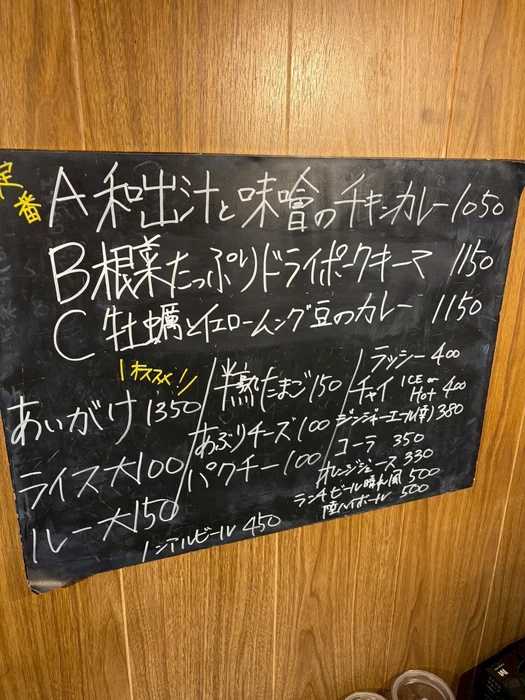 定番
A 和出汁と味噌のチキンカレー 1050
B 根菜たっぷりドライポークキーマ 1150
C 牡蠣とイエロームング豆のカレー 1150
1オススメ!!
あいがけ 1350
ライス大100
ルー大150
半熟たまご150
あぶりチーズ100
パクチー100
ノンアルビール 450
ラッシー 400
チャイ ICE or Hot 400
ジンジャーエール(辛) 380
コーラ 350
オレンジジュース 330
ランチビール 晴れ風 500
ハイボール 500